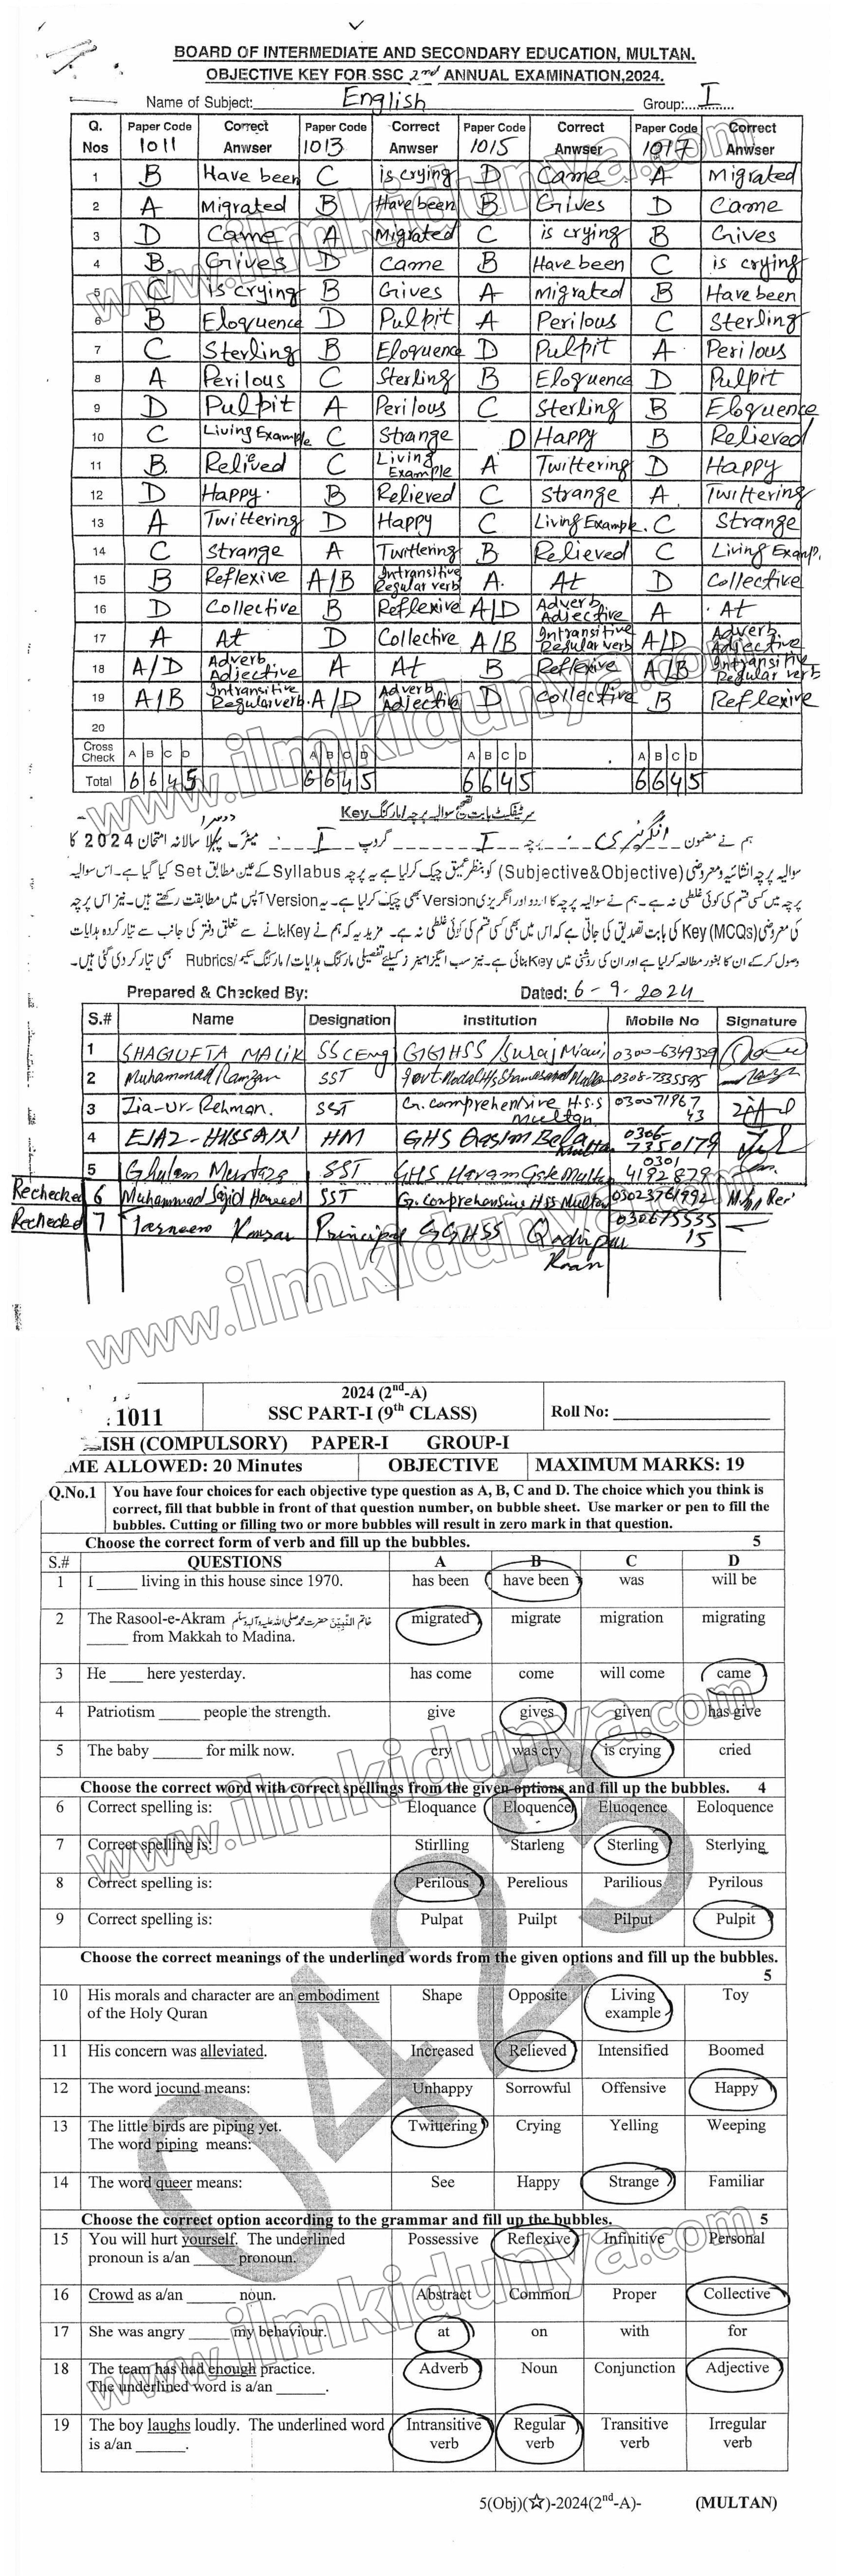 BOARD OF INTERMEDIATE AND SECONDARY EDUCATION, MULTAN.
OBJECTIVE KEY FOR SSC 2nd ANNUAL EXAMINATION,2024.
Name of Subject: English Group: I
Q. Nos Paper Code 1011 Correct Anwser Paper Code 1013 Correct Anwser Paper Code 1015 Correct Anwser Paper Code 1017 Correct Anwser
1 B Have been C is crying D Came A Migrated
2 A Migrated B Have been B Gives D Came
3 D Came A Migrated C is crying B Gives
4 B Gives D Came B Have been C is crying
5 C is crying B Gives A Migrated B Have been
6 B Eloquence D Pulpit A Perilous C Sterling
7 C Sterling B Eloquence D Pulpit A Perilous
8 A Perilous C Sterling B Eloquence D Pulpit
9 D Pulpit A Perilous C Sterling B Eloquence
10 C Living Example C Strange D Happy B Relieved
11 B Relieved C Living Example A Twittering D Happy
12 D Happy B Relieved C Strange A Twittering
13 A Twittering D Happy C Living Example. C Strange
14 C Strange A Twittering B Relieved C Living Examp.
15 B Reflexive A/B Intransitive Regular verb A. At D Collective
16 D Collective B Reflexive A/D Adverb Adjective A At
17 A At D Collective A/B Intransitive Regular verb A/D Adverb Adjective
18 A/D Adverb Adjective A At B Reflexive A/B Intransitive Regular verb
19 A/B Intransitive Regular verb. A/D Adverb Adjective D Collective B Reflexive
20
Cross Check A B C D A B C D A B C D A B C D
Total 6 6 4 5 6 6 4 5 6 6 4 5 6 6 4 5
سرٹیفکیٹ بابت تصحیح سوالیہ پرچہ/مارکنگ Key
ہم نے مضمون انگریزی پرچہ I گروپ I میٹرک پہلا دوسرا سالانہ امتحان 2024 کا
سوالیہ پرچہ انشائیہ ومعروضی (Subjective&Objective) کو بنظر عمیق چیک کرلیا ہے یہ پرچہ Syllabus کے عین مطابق Set کیا گیا ہے۔ اس سوالیہ
پرچہ میں کسی قسم کی کوئی غلطی نہ ہے۔ ہم نے سوالیہ پرچہ کا اردو اور انگریزی Version بھی چیک کرلیا ہے۔ یہ Version آپس میں مطابقت رکھتے ہیں۔ نیز اس پرچہ
کی معروضی (MCQs) Key کی بابت تصدیق کی جاتی ہے کہ اس میں بھی کسی قسم کی کوئی غلطی نہ ہے۔ مزید یہ کہ ہم نے Key بنانے سے متعلق دفتر کی جانب سے تیار کردہ ہدایات
وصول کر کے ان کا بغور مطالعہ کرلیا ہے اور ان کی روشنی میں Key بنائی ہے۔ نیز سب ایگزامینرز کیلئے تفصیلی مارکنگ ہدایات/مارکنگ سکیم/Rubrics بھی تیار کر دی گئی ہیں۔
Prepared & Checked By: Dated: 6-9-2024
S.# Name Designation Institution Mobile No Signature
1 SHAGUFTA MALIK SSC Eng GGHSS /Suraj Miani 0300-6349329
2 Muhammad Ramzan SST 0308-7335595
3 Zia-ur-Rehman. SST G. comprehensive H.S.S Multan 030071967 43
4 EJAZ-HUSSAIN HM GHS Qasim Bela Multan 0306- 7350179
5 Ghulam Murtaza SST GHS Haram Gate Multan 0301 4192879
Rechecked 6 Muhammad Sajid Hameed SST G. comprehensive HSS Multan 03023761992
Rechecked 7 Tasneem Kausar Principal GGHSS Qadirpur Raan 030675535 15
www.ilmkidunya.com
1011 2024 (2nd-A) SSC PART-I (9th CLASS) Roll No:
ISH (COMPULSORY) PAPER-I GROUP-I
ME ALLOWED: 20 Minutes OBJECTIVE MAXIMUM MARKS: 19
Q.No.1 You have four choices for each objective type question as A, B, C and D. The choice which you think is
correct, fill that bubble in front of that question number, on bubble sheet. Use marker or pen to fill the
bubbles. Cutting or filling two or more bubbles will result in zero mark in that question.
Choose the correct form of verb and fill up the bubbles. 5
S.# QUESTIONS A B C D
1 I _____ living in this house since 1970. has been have been was will be
2 The Rasool-e-Akram خاتم النبیین حضرت محمد صلی اللہ علیہ وآلہ وسلم _____ from Makkah to Madina. migrated migrate migration migrating
3 He ____ here yesterday. has come come will come came
4 Patriotism _____ people the strength. give gives given has give
5 The baby ______ for milk now. cry was cry is crying cried
Choose the correct word with correct spellings from the given options and fill up the bubbles. 4
6 Correct spelling is: Eloquance Eloquence Eluoqence Eoloquence
7 Correct spelling is: Stirlling Starleng Sterling Sterlying
8 Correct spelling is: Perilous Perelious Parilious Pyrilous
9 Correct spelling is: Pulpat Puilpt Pilput Pulpit
Choose the correct meanings of the underlined words from the given options and fill up the bubbles.
5
10 His morals and character are an embodiment of the Holy Quran Shape Opposite Living example Toy
11 His concern was alleviated. Increased Relieved Intensified Boomed
12 The word jocund means: Unhappy Sorrowful Offensive Happy
13 The little birds are piping yet. The word piping means: Twittering Crying Yelling Weeping
14 The word queer means: See Happy Strange Familiar
Choose the correct option according to the grammar and fill up the bubbles. 5
15 You will hurt yourself. The underlined pronoun is a/an ______ pronoun. Possessive Reflexive Infinitive Personal
16 Crowd as a/an ______ noun. Abstract Common Proper Collective
17 She was angry _____ my behaviour. at on with for
18 The team has had enough practice. The underlined word is a/an ______. Adverb Noun Conjunction Adjective
19 The boy laughs loudly. The underlined word is a/an ______. Intransitive verb Regular verb Transitive verb Irregular verb
0423
5(Obj)(☆)-2024(2nd-A)- (MULTAN)